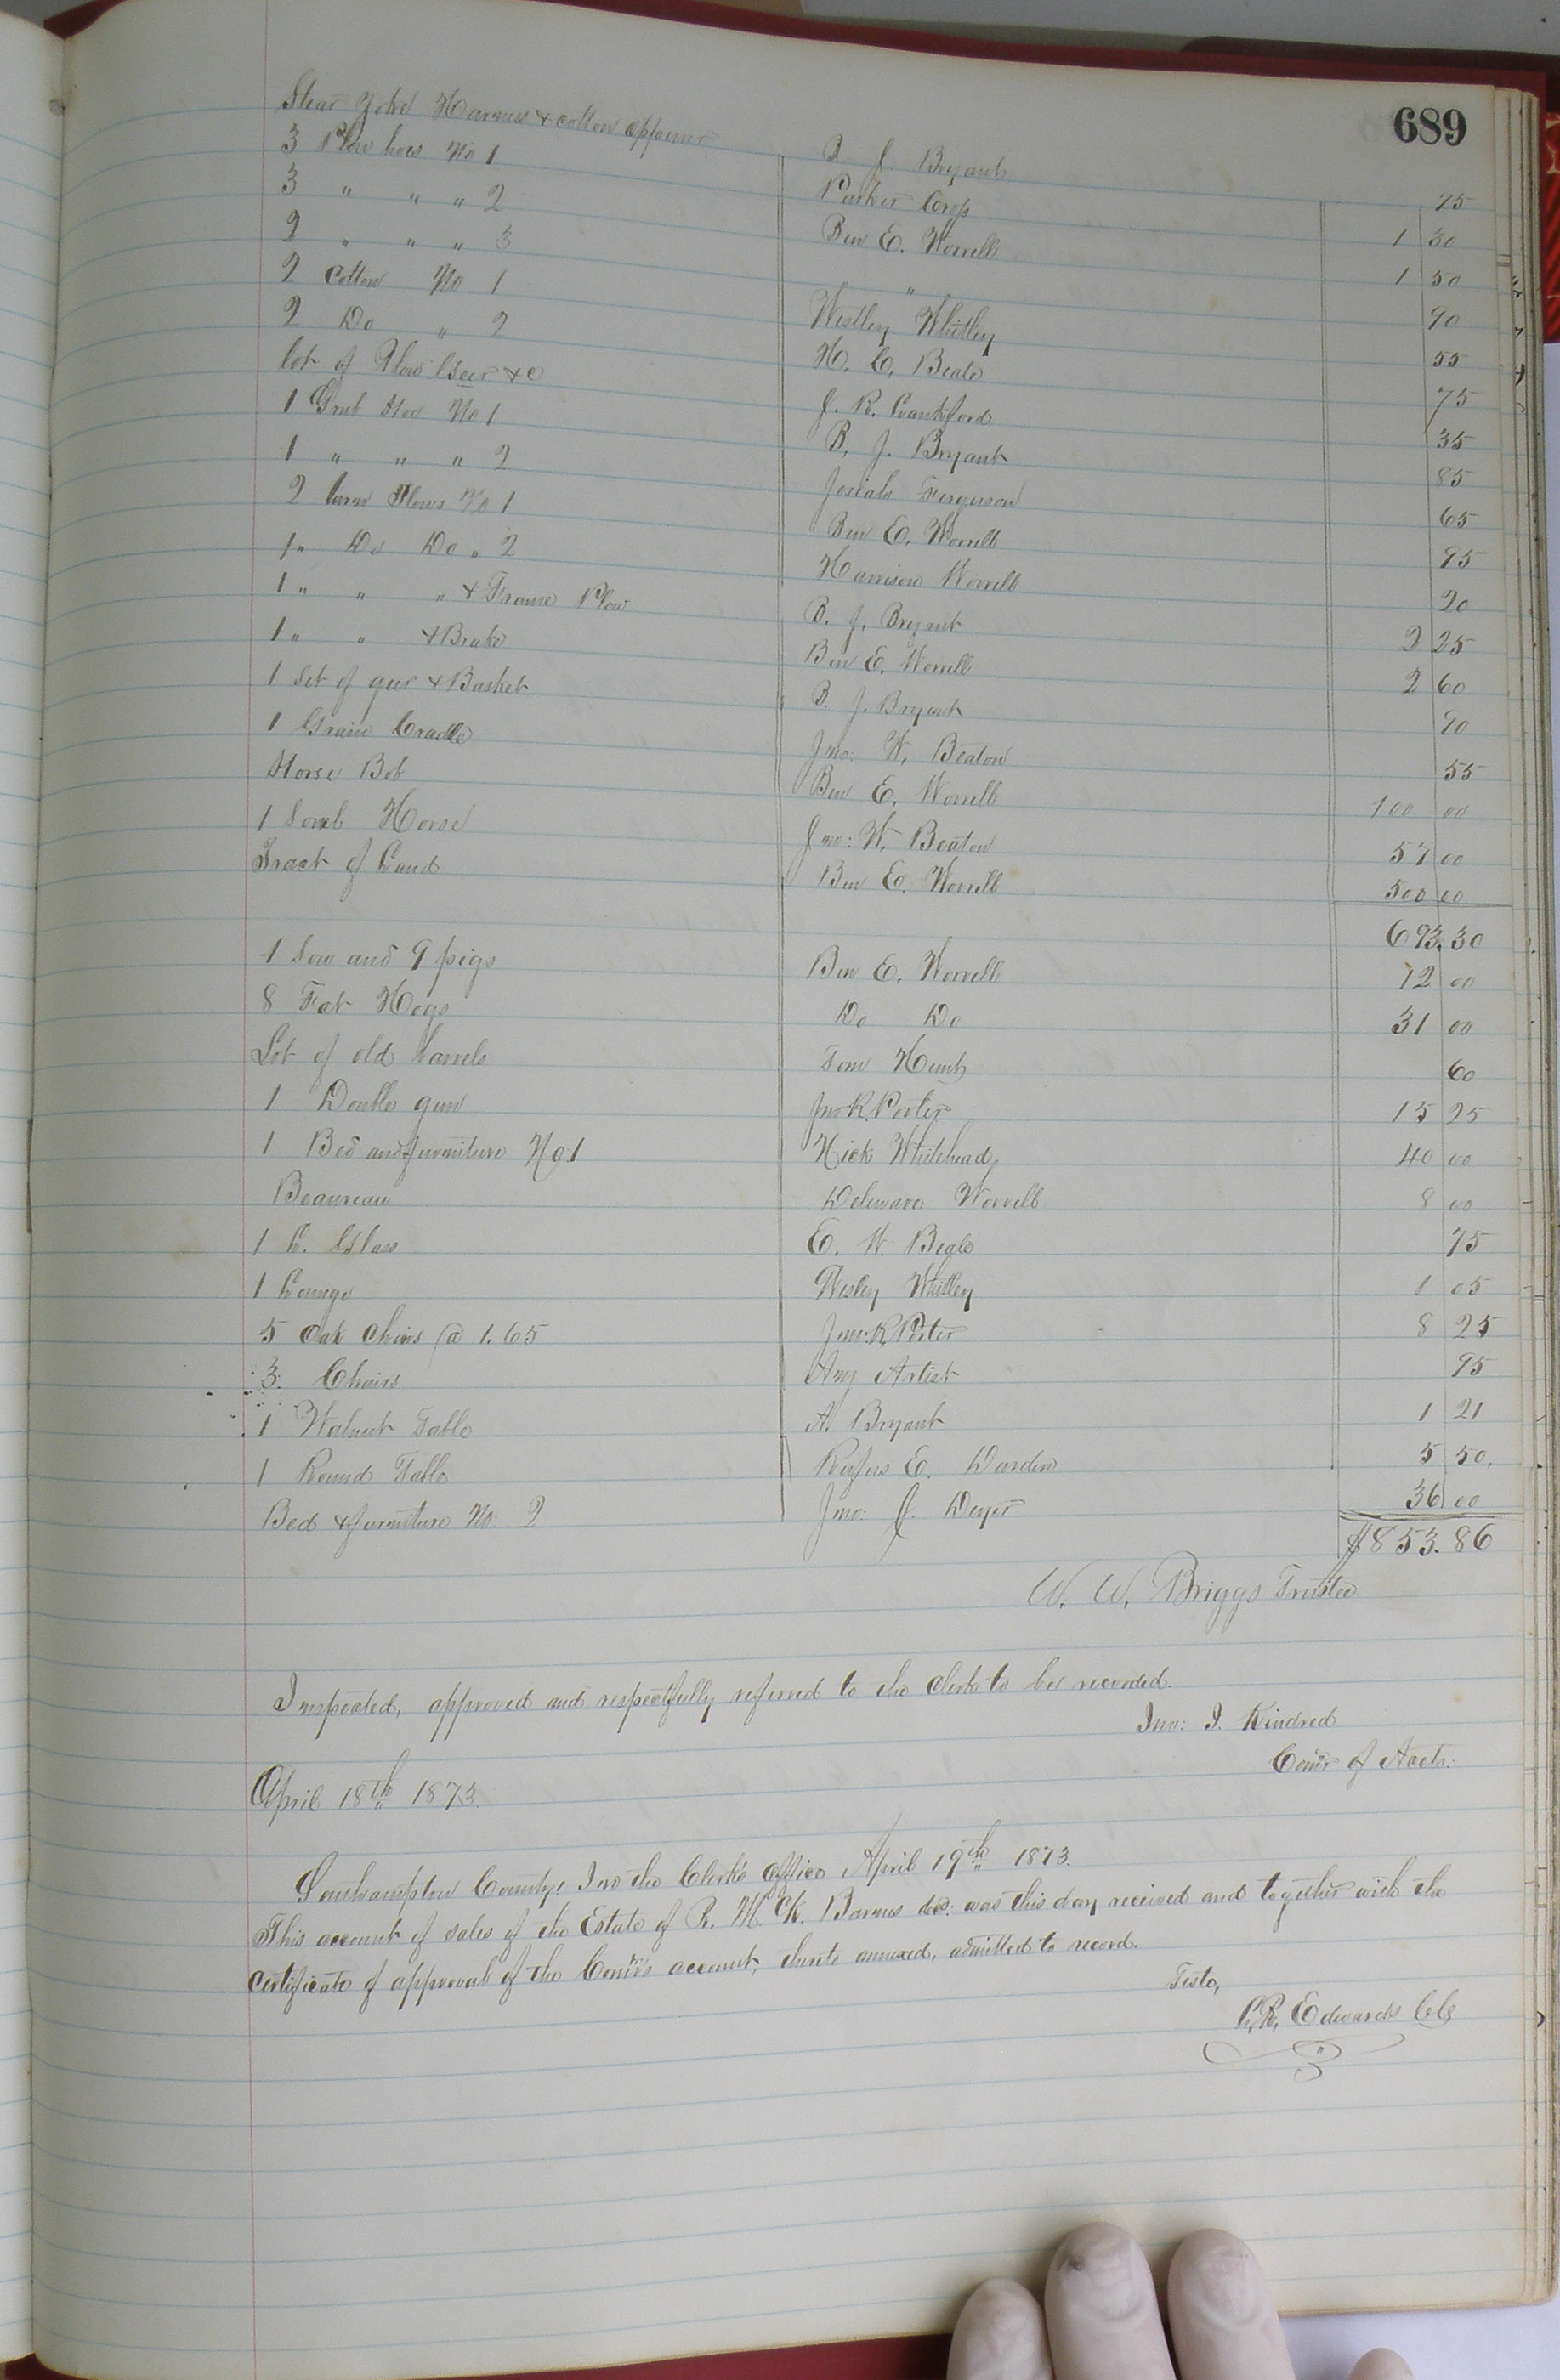 689
Stear Yoke Harness & cotton oppener B J Bryant 75
3 Plow hoes No 1 Parker Crop 1 30
3 " " " 2 Ben E. Worrell 1 50
2 " " " 3 " 90
2 Cotton No 1 Westley Whitley 55
2 Do " 2 H. C. Beale 75
lot of Plow Gear &c J. R. Lankford 35
1 Grub Hoe No 1 B. J. Bryant 85
1 " " " 2 Josiah Ferguson 65
2 turn Plows No 1 Ben E. Worrell 95
1 " Do Do " 2 Harrison Worrell 20
1 " " " & Frame Plow B. J. Bryant 2 25
1 " " & Brake Ben E. Worrell 2 60
1 Set of gear & Basket B. J. Bryant 90
1 Grain Cradle Jno: W. Beaton 55
Horse Bob Ben E. Worrell 100 00
1 Sorrel Horse Jno: W. Beaton 57 00
Tract of Land Ben E. Worrell 500 00
693.30
1 Sow and 9 pigs Ben E. Worrell 12 00
8 Fat Hogs Do Do 31 00
Lot of old barrels Tom Hunt 60
1 Double gun Jno R. Porter 15 25
1 Bed and furniture No 1 Nick Whitehead 40 00
Beaureau Delaware Worrell 8 00
1 L. Glass E. W. Beale 75
1 Lounge Wesley Whitley 1 05
5 Oak Chairs @ 1.65 Jno: R Porter 8 25
3. Chairs Any Artist 95
1 Walnut Table A. Bryant 1 21
1 Round Table Rufus E. Darden 5 50.
Bed & furniture No: 2 Jno: J. Deyer 36 00
$853.86
W. W. Briggs Trustee
Inspected, approved and respectfully referred to the Clerk to be recorded.
Jno: J. Kindred
Comr of Accts:
April 18th 1873.
Southampton County: In the Clerk's Office April 19th 1873.
This account of sales of the Estate of R. H. CK. Barnes dec: was this day received and together with the
certificate of approval of the Comr's account, thereto annexed, admitted to record.
Teste,
L. R. Edwards Clk